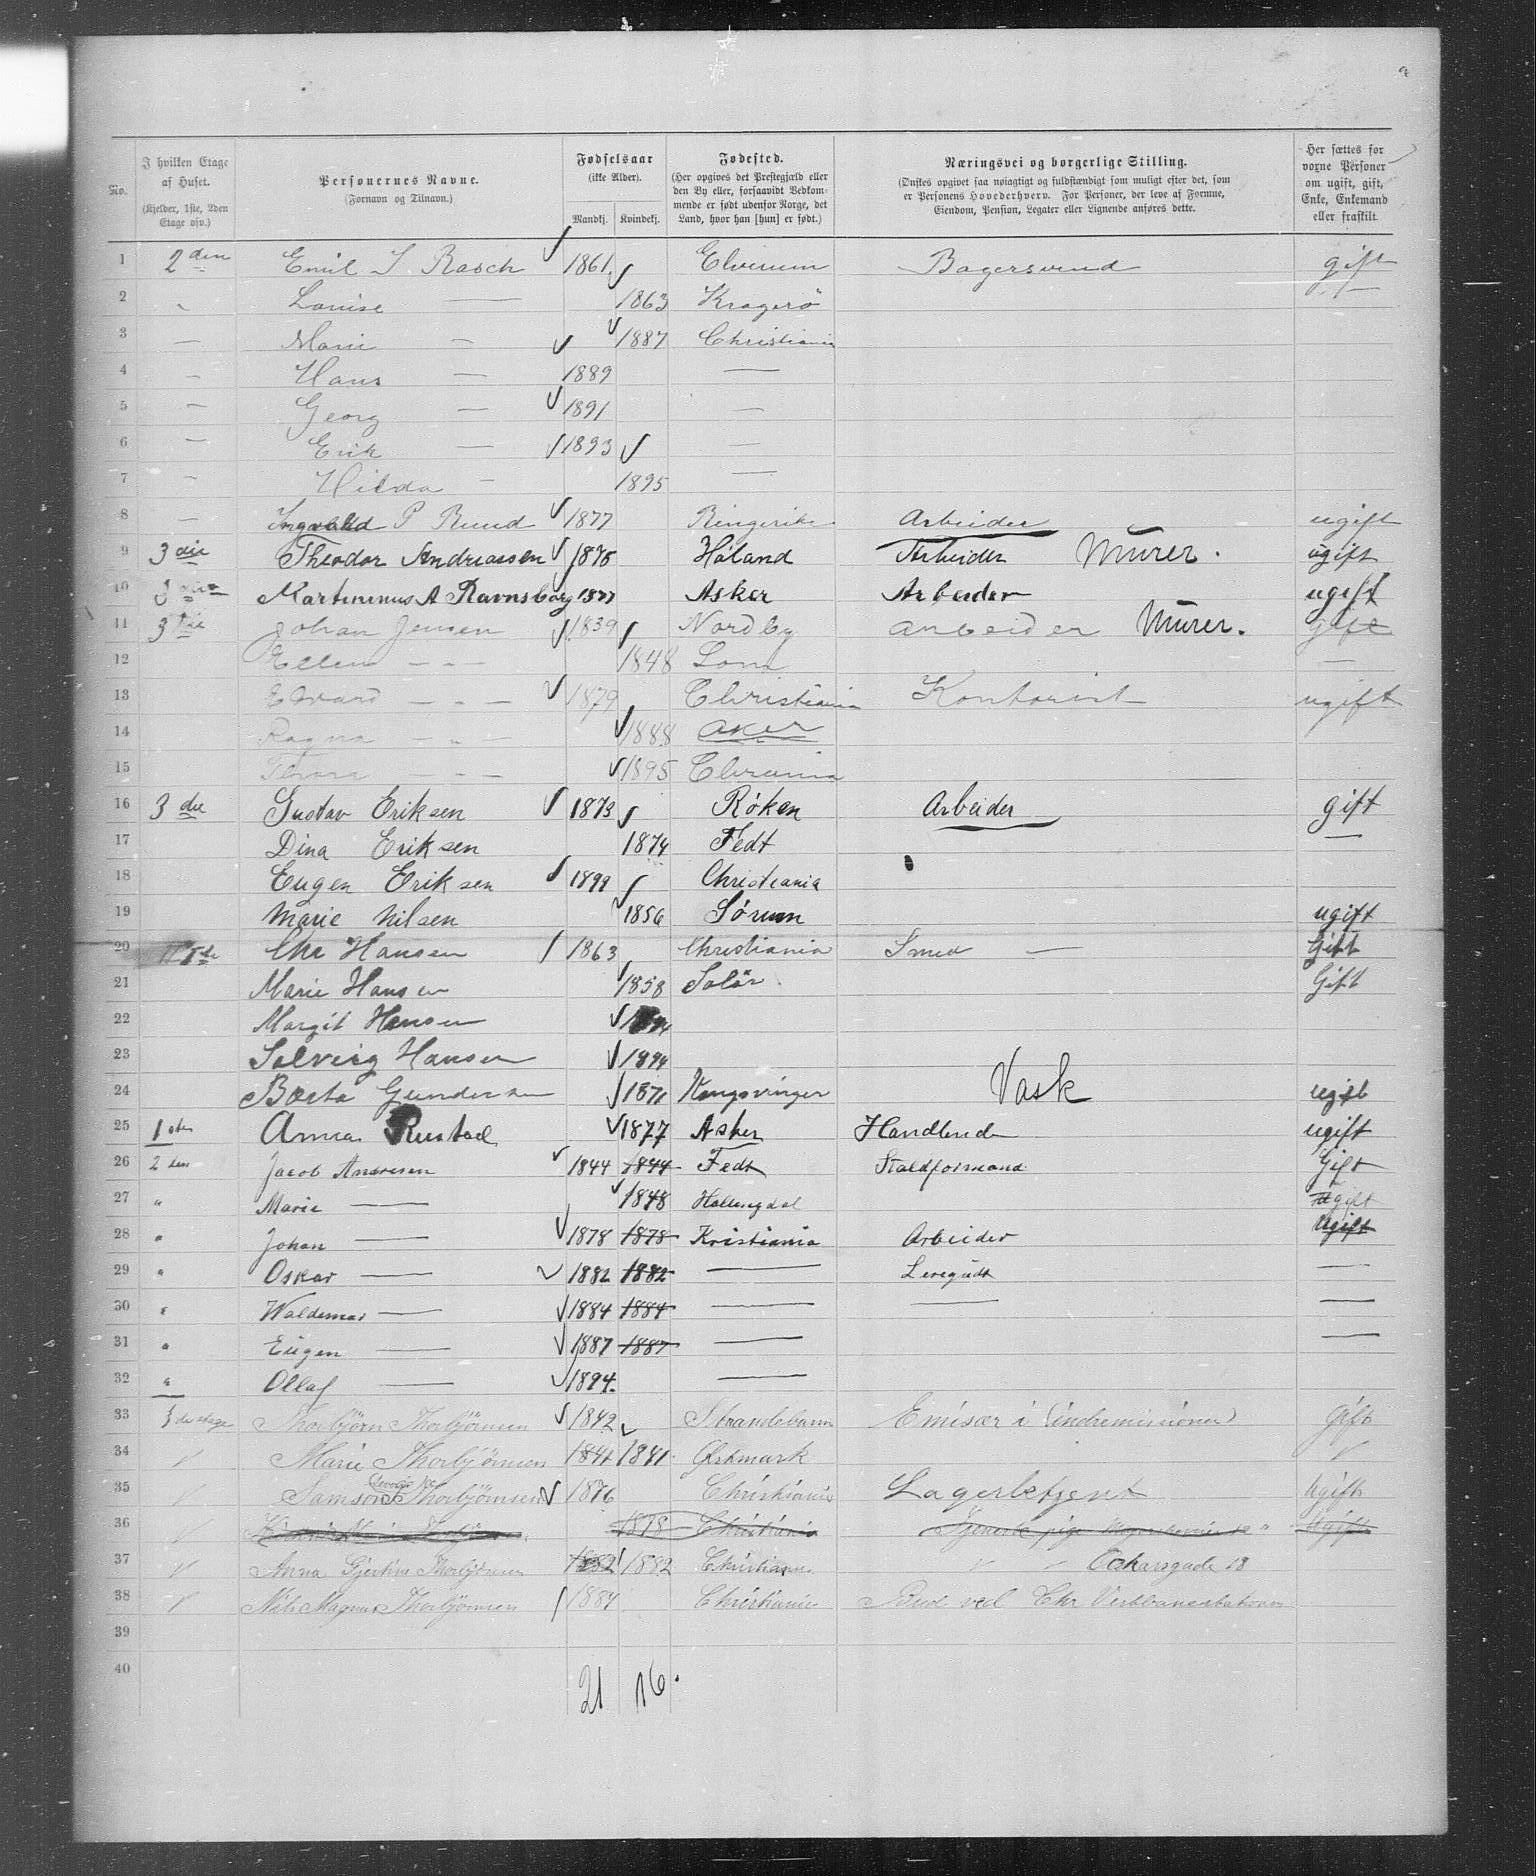 No.
I hvilken Etage af Huset.
(Kjelder, 1ste, 2den Etage osv.)
Personernes Navne.
(Fornavn og Tilnavn.)
Fødselsaar
(ikke Alder).
Mandkj. Kvindekj.
Fødested.
(Her opgives det Prestegjæld eller den By eller, forsaavidt Vedkommende er født udenfor Norge, det Land, hvor han [hun] er født.)
Næringsvei og borgerlige Stilling.
(Ønskes opgivet saa nøiagtigt og fuldstændigt som muligt efter det, som er Personens Hovederhverv. For Personer, der leve af Formue, Eiendom, Pension, Legater eller Lignende anføres dette.
Her sættes for voxne Personer om ugift, gift, Enke, Enkemand eller fraskilt.
1 2den Emil I Rasch 1861 Elverum Bagersvend gift
2 Louise — 1863 Kragerö —
3 — Marie — 1887 Christiania
4 — Hans — 1889 —
5 — Georg — 1891 —
6 — Erik — 1893 —
7 — Hilda — 1895 —
8 — Ingvald P Ruud 1877 Ringerike Arbeider ugift
9 3die Theodor Andreassen 1876 Höland Arbeider Murer. ugift
10 3die Martinius A Ravnsborg 1877 Asker Arbeider ugift
11 3die Johan Jensen 1839 Nordby arbeider Murer. gift
12 Ellen — " — 1848 Lom —
13 Edvard — " — 1879 Christiania Kontorist ugift
14 Ragna — " — 1888 Aker
15 Thora — " — 1895 Chrania
16 3die Gustav Eriksen 1873 Röken Arbeider gift
17 Dina Eriksen 1874 Fedt —
18 Eugen Eriksen 1899 Christiania
19 Marie Nilsen 1856 Sörum ugift
20 Chr Hansen 1863 Christiania Smed — Gift
21 Marie Hansen 1858 Solör. Gift
22 Margit Hansen
23 Solveig Hansen 1894
24 Berta Gundersen 1871 Kongsvinger Vask ugift
25 1ste Anna Rustad 1877 Asker Handlende ugift
26 2den Jacob Andresen 1844 1844 Fedt Staldformand Gift
27 " Marie — 1848 Hallingdal gift
28 " Johan — 1878 1878 Kristiania Arbeider Ugift
29 " Oskar — 1882 1882 — Leregudt —
30 " Waldemar — 1884 1884 — — —
31 " Eugen — 1887 1887 — —
32 " Ollaf — 1894. —
33 3de etage Thorbjörn Thorbjörnsen 1842 Strandebarm Emisær i (indremissionen) gift
34 Marie Thorbjörnsen 1841 1841. Østmark
35 Samson Thorbjörnsen 1876 Christiania Lagerbetjent Ugift
36 1878 Christiania Ugift
37 Anna Gjertine Thorbjörnsen 1882 1882 Christiania Oskarsgade 18
38 Nils Magnus Thorbjörnsen 1884 Christiania Bud ved Chr Vestbanestation
39
40
21 16.